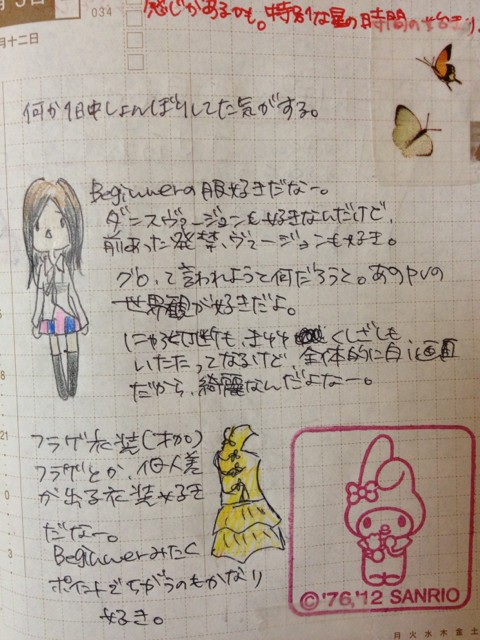 034
月十二日
感じがあるかも。特別な星の時間の始まり
何か1日中しょんぼりしてた気がする。
Beginnerの服好きだなー。
ダンスヴァージョンも好きなんだけど、
前あった発禁ヴァージョンも好き。
グロ、って言われようと何だろうと。あのPVの
世界観が好きだよ。
くしざしも
いたたってなるけど、全体的に白い画面
だから、綺麗なんだよなー。
フラゲ衣装(才加)
フラゲとか、個人差
が出る衣装好き
だなー。
Beginnerみたく
ポイントでちがうのもかなり
好き。
©'76,'12 SANRIO
月火水木金土